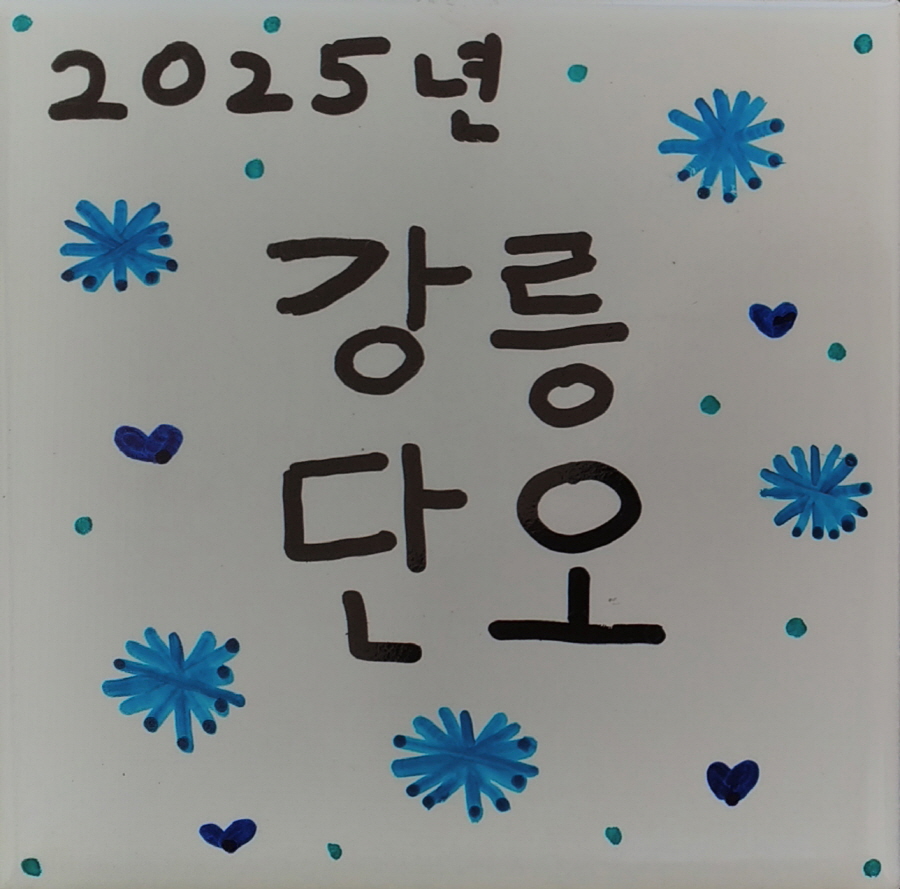 2025년
강릉
단오